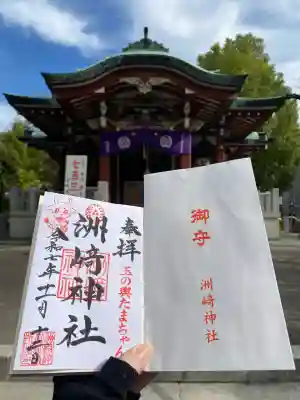 七五三
奉拝
玉の輿たまちゃん
洲崎神社
令和七年十一月十二日
御守
洲崎神社